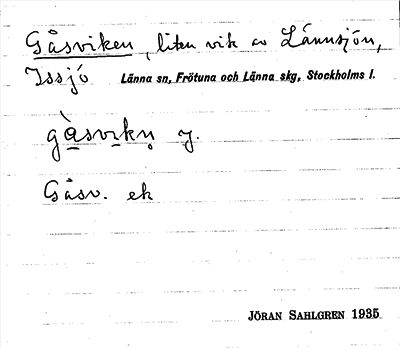 Gåsviken, liten vik av Lännsjön,
Issjö Länna sn, Frötuna och Länna skg, Stockholms l.
gåsvikn̥ y.
Gåsv. ek
JÖRAN SAHLGREN 1935